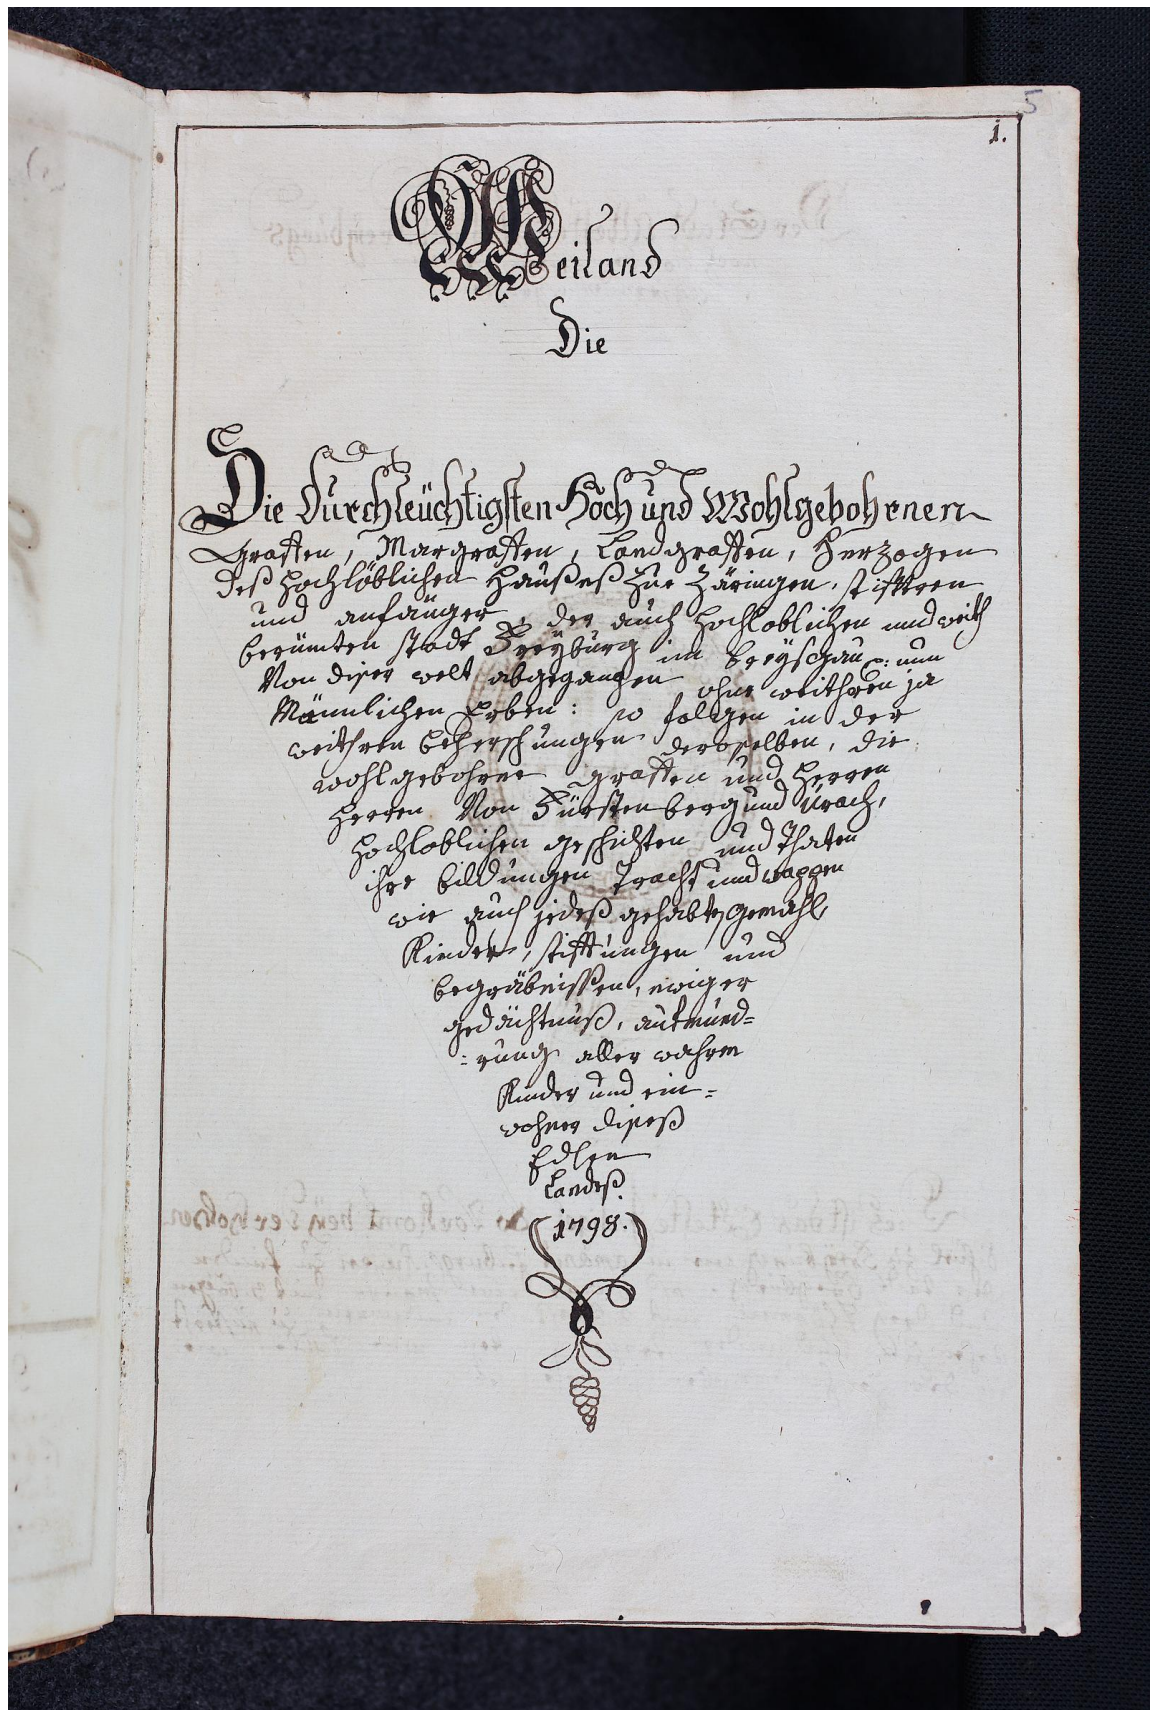 5
1.
Weiland
Die
Die Durchleüchtigsten Hoch und Wohlgebohrnen
Graffen, Margraffen, Landgraffen, Herzogen
deß Hochlöblichen Haußeß zue Zäringen, stiffteren
und anfänger, der auch Hochloblichen und weith
berümten stadt Freyburg im breysgau: nun
Von diser welt abgegangen ohne weithren ja
Männlichen Erben: so folgen in der
weithren beherschungen derselben, die
wohlgebohrne graffen und Herren
Herren Von Fürstenberg und Urach,
Hochloblichen geschichten und Thaten
ihre bildungen Tracht und wappen
wie auch jedeß gehabte gemahl,
Kinder, stifftungen und
begräbnissen, ewiger
gedächtnuß, aufmund=
=rung aller wahren
Kinder und ein=
wohner diseß
Edlen
Landeß.
(1798.)